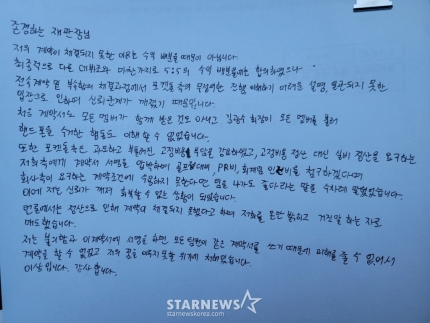 존경하는 재판장님
저의 계약이 체결되지 못한 이유는 수익 배분율 때문이 아닙니다.
최종적으로 다른 데뷔조와 마찬가지로 5:5의 수익 배분율에는 합의하였으나
전속계약 및 부속합의 체결과정에서 포켓돌측의 무성의한 진행, 이해하기 어려운 설명, 일관되지 못한
입장으로 인하여 신뢰관계가 깨졌기 때문입니다.
처음 계약서도 모든 멤버가 함께 본은 것도 아니고 김광수 회장이 모든 멤버를 불러
핸드폰을 수거한 행동도 이해할 수 없었습니다.
또한 포켓돌측은 과도하고 부풀어진, 고정비용 부담을 강요하였고, 고정비용 정산 대신 실비 정산을 요구하는
저희측에게 계약서 서명을 압박하며 골프접대비, PR비, 회계팀 인건비를 청구하겠다며
회사측이 요구하는 계약조건에 수용하지 못한다면 팀을 나가도 좋다라는 말을 수차례 말했었습니다.
이에 저는 신뢰가 깨져 회복할 수 없는 상황이 되었습니다.
언론에서는 정산으로 인해 계약이 체결되지 못했다고 하며 저희를 돈만 밝히고 거짓말 하는 자로
매도했습니다.
저는 불리함과 이 계약서에 서명을 하면 모든 팀원이 같은 계약서를 쓰기 때문에 피해를 줄 수 없어서
계약을 할 수 없었고 저의 꿈을 이루지 못할 위기에 처해있습니다.
이상입니다. 감사합니다.
STARNEWS
starnewskorea.com